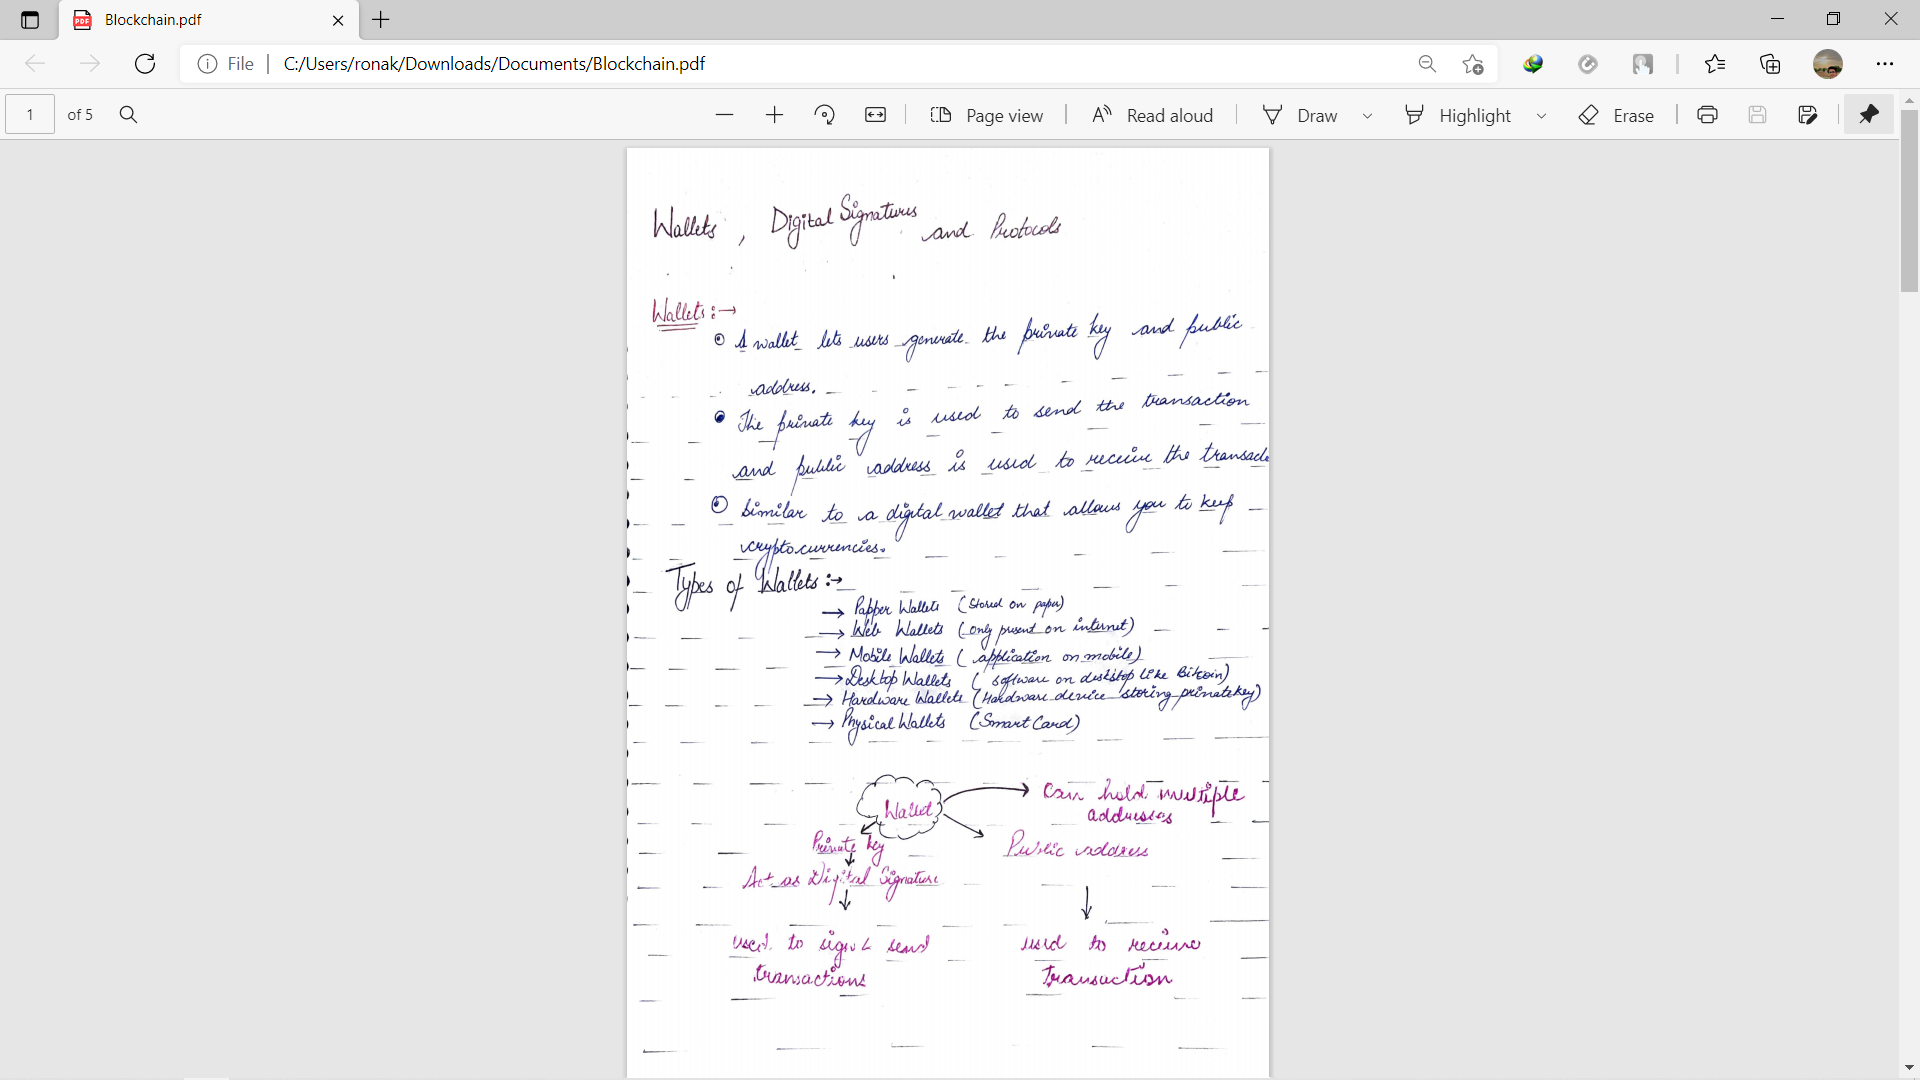 Blockchain.pdf
File C:/Users/ronak/Downloads/Documents/Blockchain.pdf
1 of 5 Page view Read aloud Draw Highlight Erase
Wallets, Digital Signatures and Protocols
Wallets :→
A wallet lets users generate the private key and public
address.
The private key is used to send the transaction
and public address is used to receive the transac
Similar to a digital wallet that allows you to keep
cryptocurrencies.
Types of Wallets :→
→ Papper Wallets (Stored on paper)
→ Web Wallets (only present on internet)
→ Mobile Wallets (application on mobile)
→ Desktop Wallets (software on deskstop like Bitcoin)
→ Hardware Wallets (Hardware device storing private key)
→ Physical Wallets (Smart Card)
Wallet
Can hold multiple
addresses
Private key
Public address
Act as Digital Signature
used to sign & send
transactions
used to receive
transaction